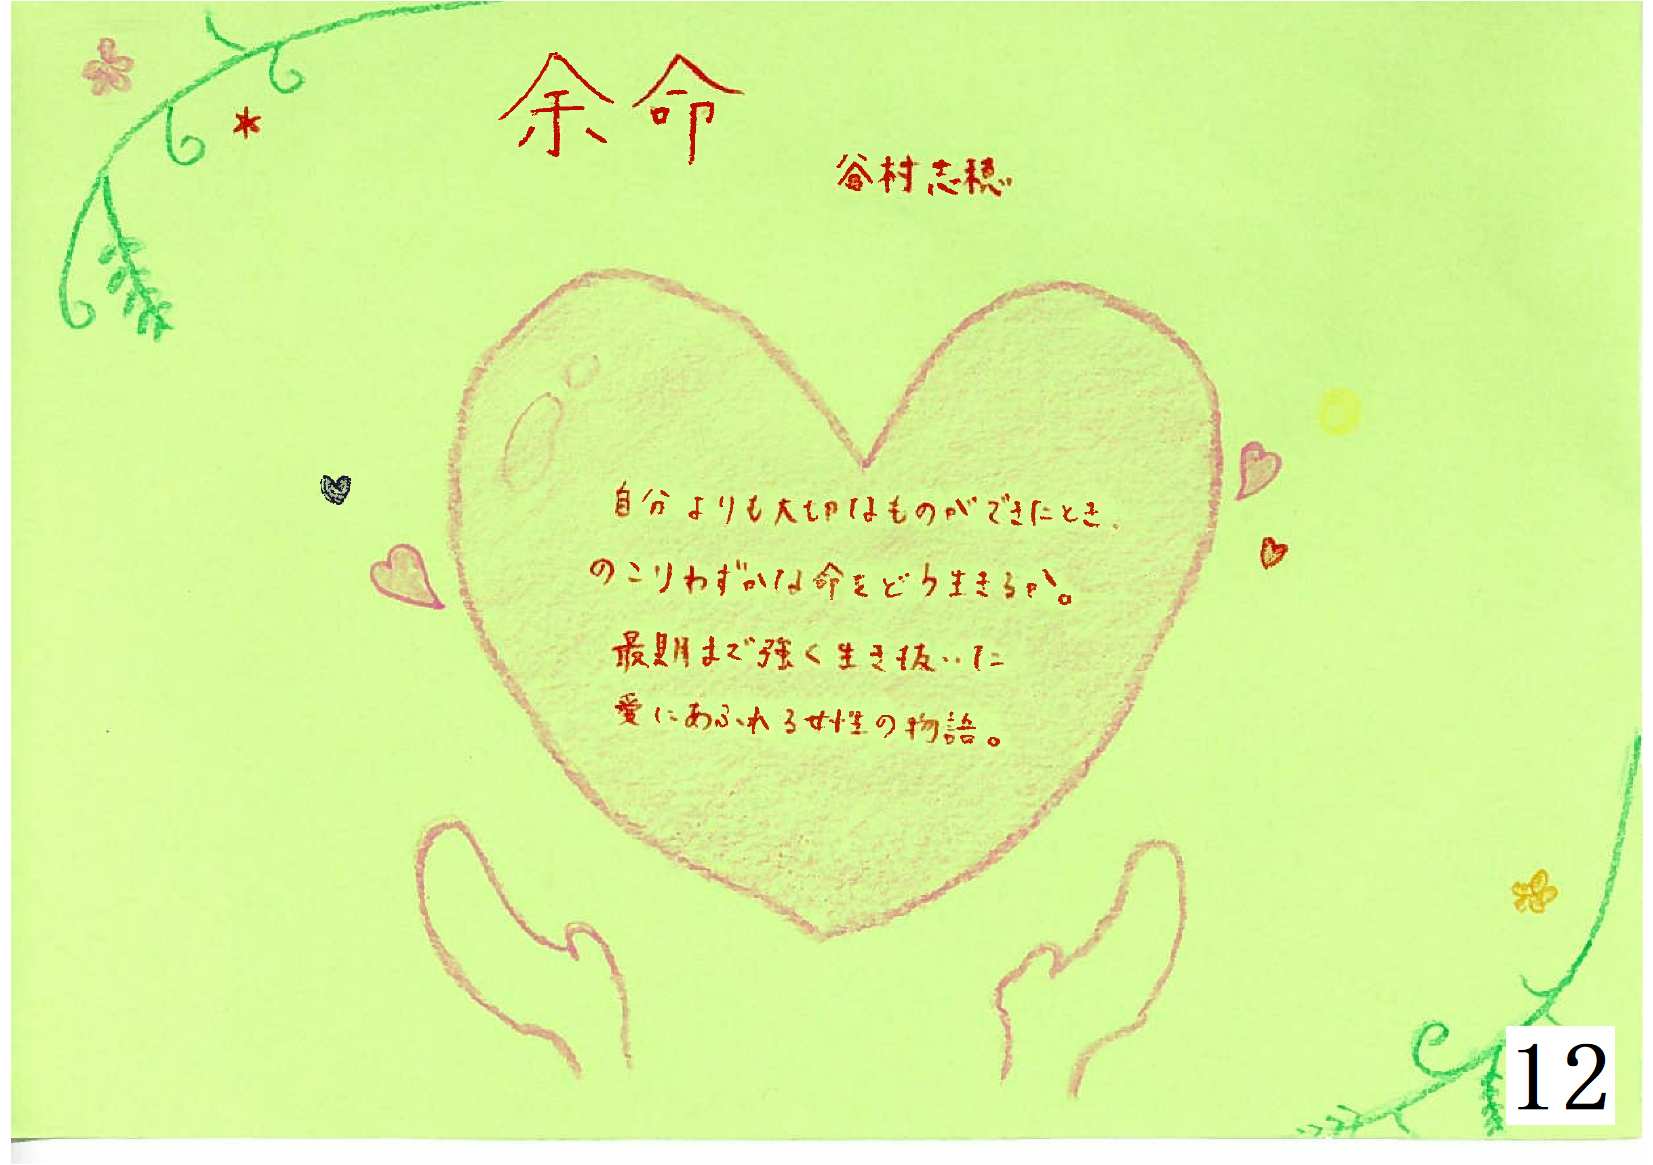 余命
谷村志穂
自分よりも大切なものができたとき、
のこりわずかな命をどう生きるか。
最期まで強く生き抜いた
愛にあふれる女性の物語。
12